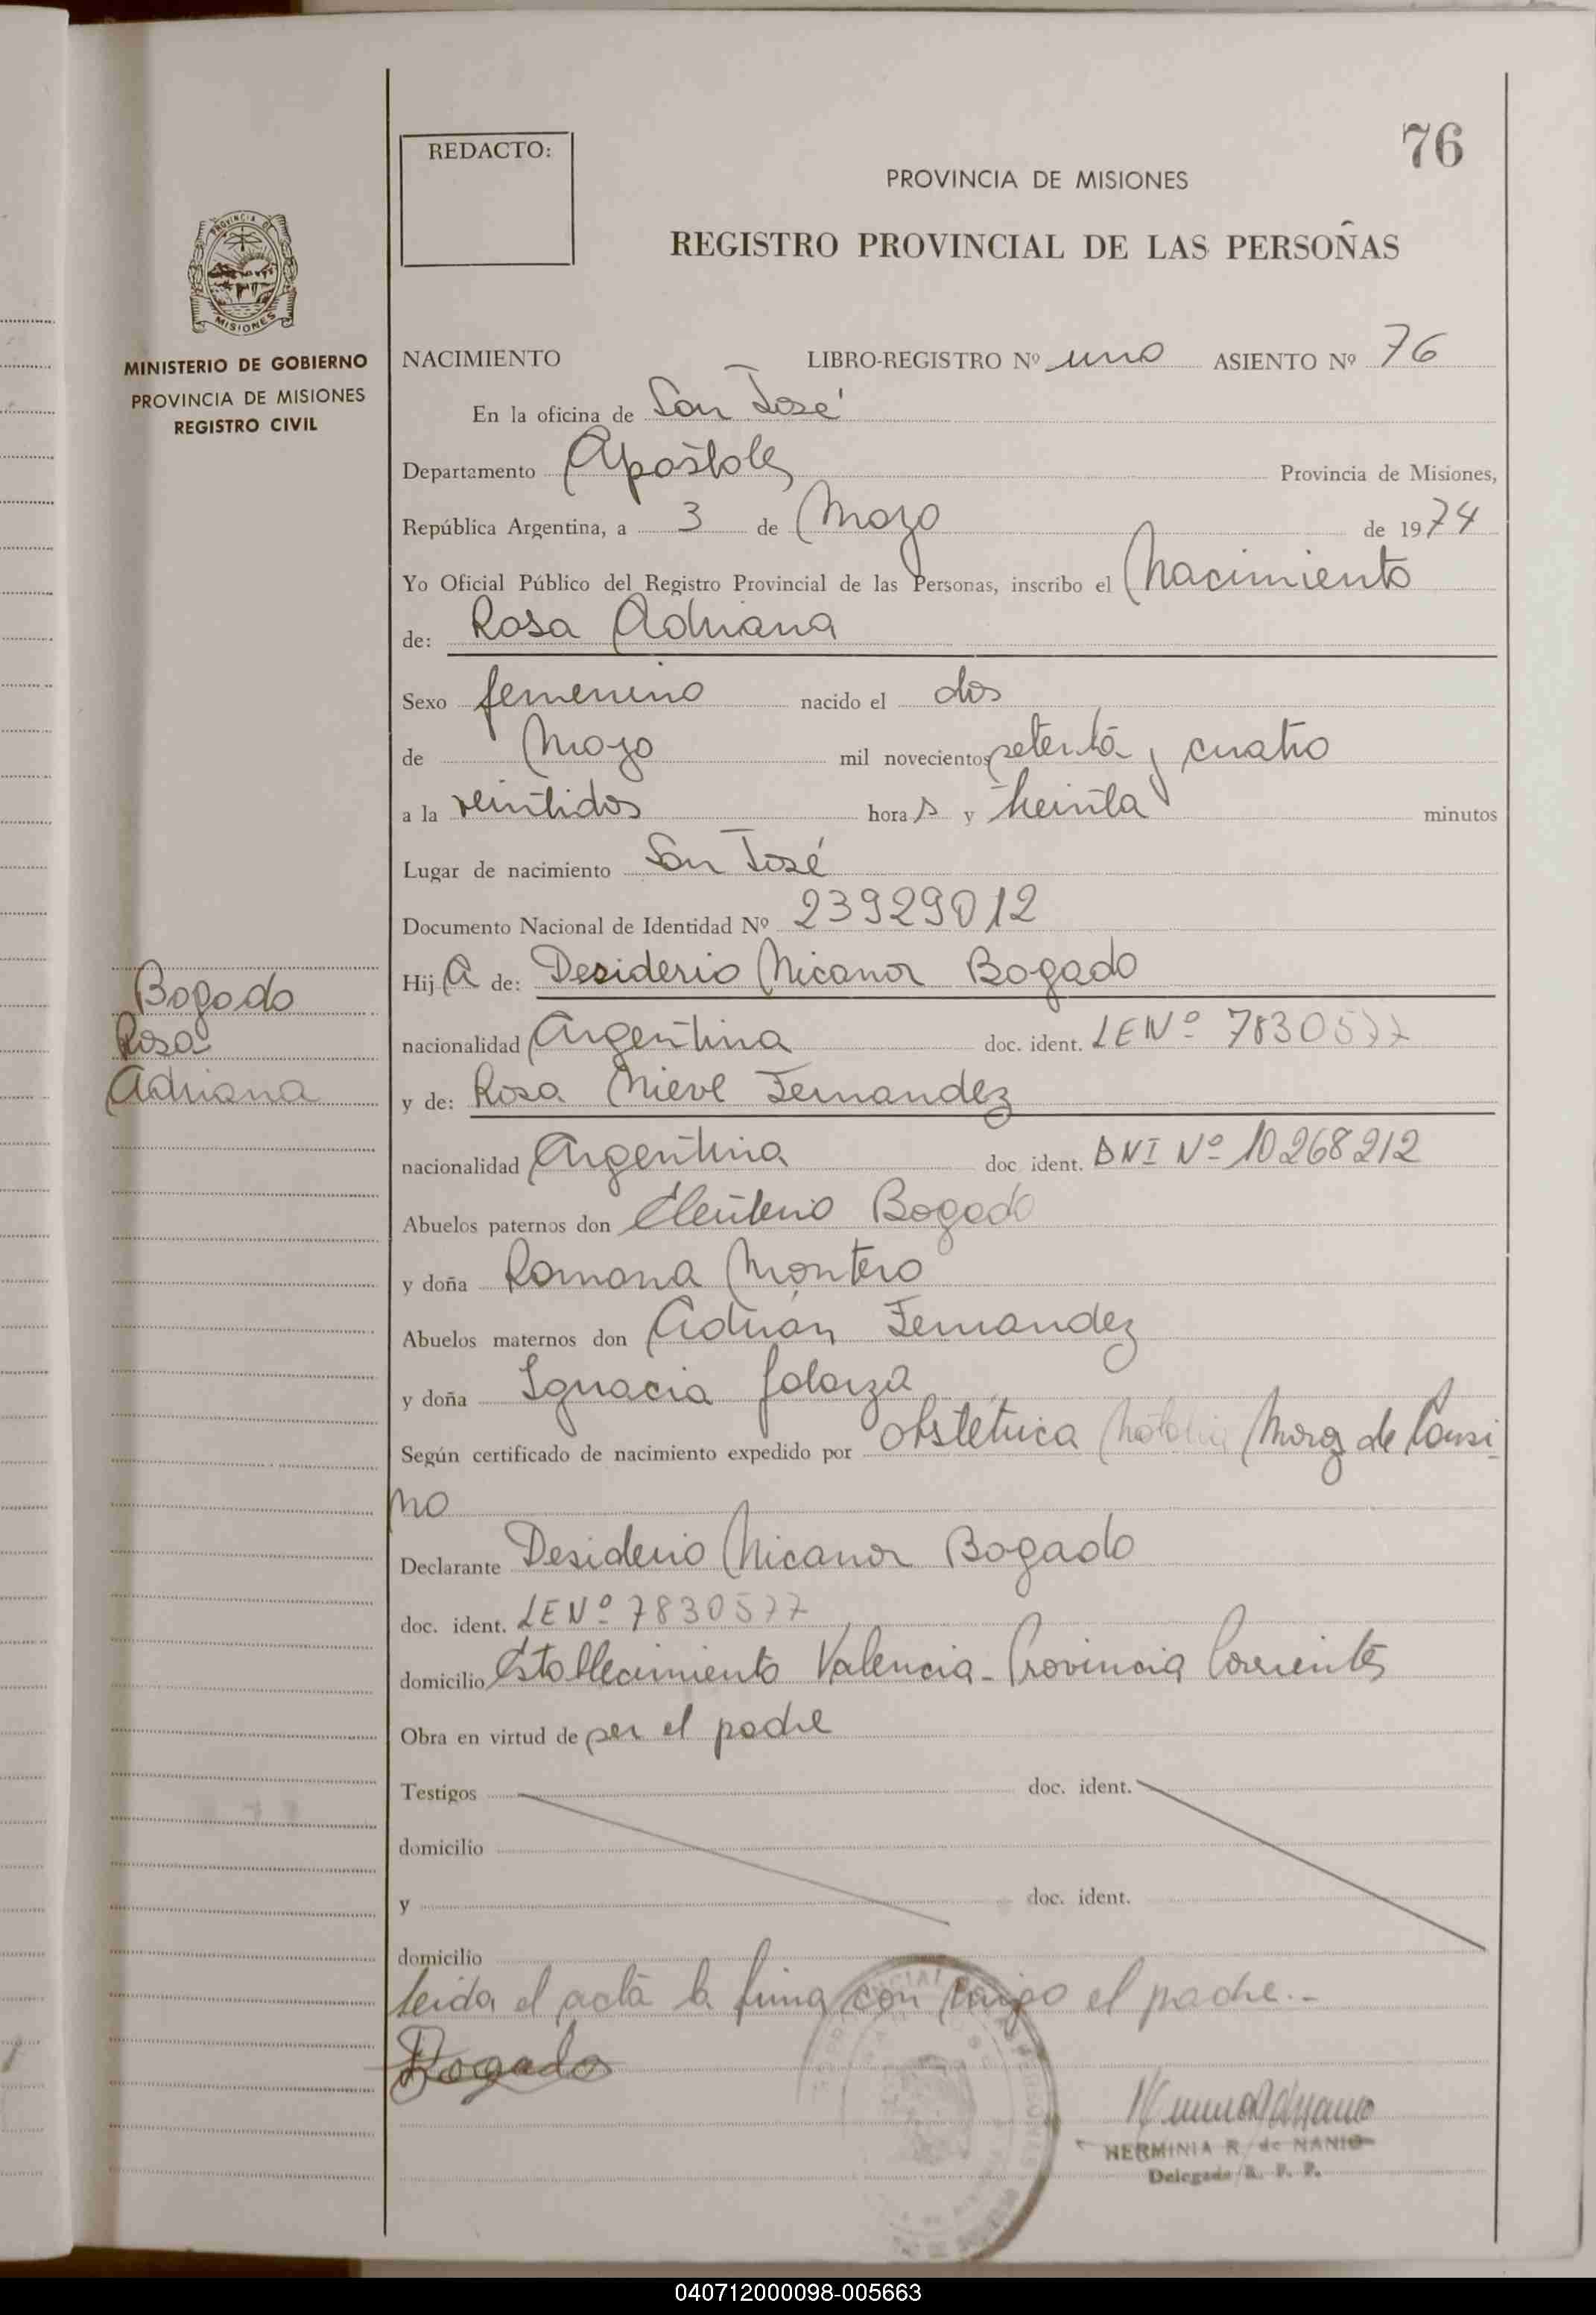 76
REDACTO:
PROVINCIA DE MISIONES
REGISTRO PROVINCIAL DE LAS PERSOÑAS
PROVINCIA DE
MISIONES
MINISTERIO DE GOBIERNO
PROVINCIA DE MISIONES
REGISTRO CIVIL
NACIMIENTO LIBRO-REGISTRO Nº uno ASIENTO Nº 76
En la oficina de San José
Departamento Apóstoles Provincia de Misiones,
República Argentina, a 3 de Mayo de 1974
Yo Oficial Público del Registro Provincial de las Personas, inscribo el Nacimiento
de: Rosa Adriana
Sexo femenino nacido el dos
de Mayo mil novecientos setenta y cuatro
a la veintidos hora s y treinta minutos
Lugar de nacimiento San José
Documento Nacional de Identidad Nº 23929012
Hij A de: Desiderio Nicanor Bogado
nacionalidad Argentina doc. ident. LE Nº 7830577
y de: Rosa Nieve Fernandez
nacionalidad Argentina doc. ident. DNI Nº 10268212
Abuelos paternos don Eleuterio Bogado
y doña Ramona Montero
Abuelos maternos don Adrián Fernandez
y doña Ignacia Galarza
Según certificado de nacimiento expedido por Obstétrica Natalia de
no
Declarante Desiderio Nicanor Bogado
doc. ident. LE Nº 7830577
domicilio Establecimiento Valencia - Provincia Corrientes
Obra en virtud de ser el padre
Testigos doc. ident.
domicilio
y doc. ident.
domicilio
Leida el acta la firma conmigo el padre.-
Bogado
HERMINIA R. de NANIO
Delegada R. P. P.
Bogado
Rosa
Adriana
040712000098-005663